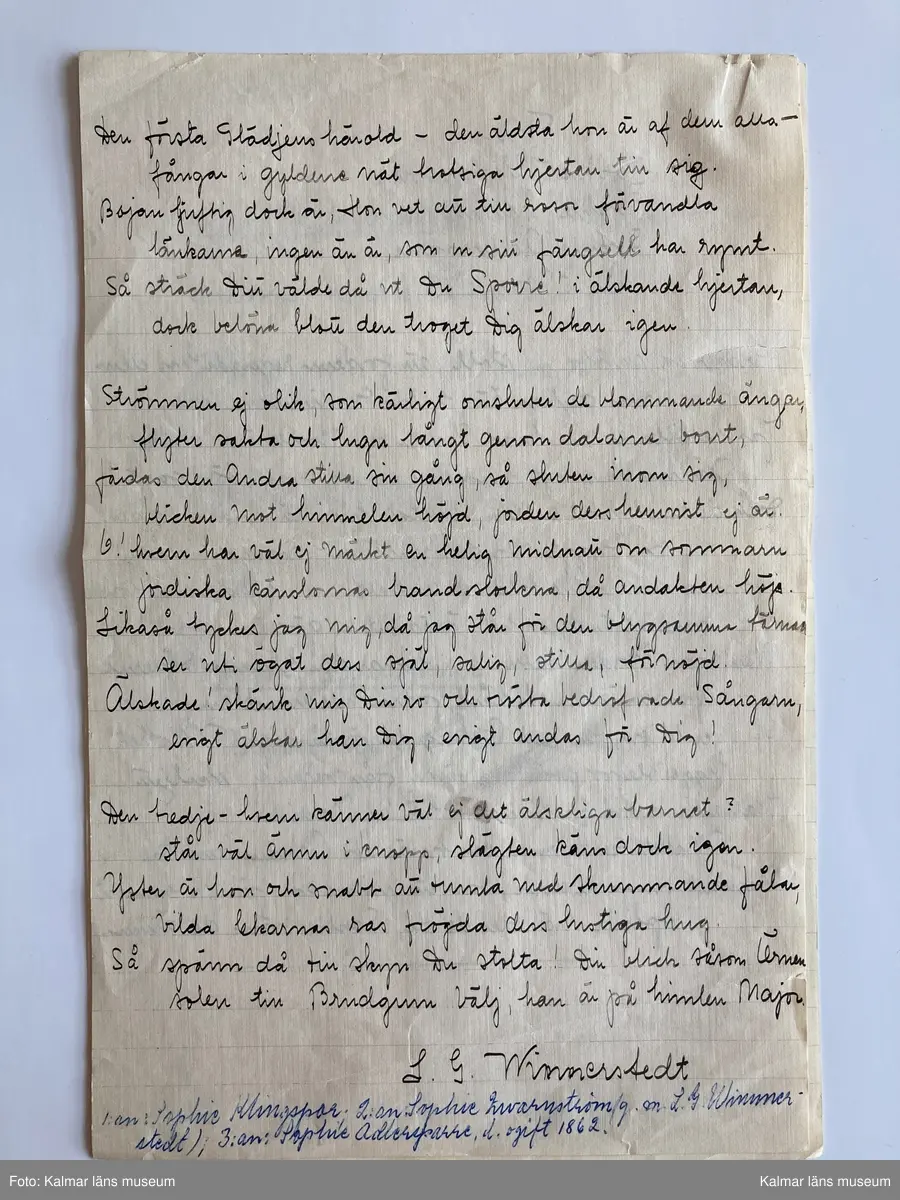 Den första Glädjens härold – den äldsta hon är af dem alla –
fångar i gyldene nät trotsiga hjertan till sig.
Bojan ljuflig dock är, Hon vet att till rosor förvandla
länkarna, ingen än är, som ur sitt fängsell har rymt.
Så sträck Ditt välde då ut Du Sporre! i älskande hjertan,
dock belöna blott den troget Dig älskar igen.
Strömmen ej olik, som kärligt omsluter de blommande ängar,
flyter sakta och lugn långt genom dalarne bort,
färdas den Andra stilla sin gång, så sluten inom sig,
blicken mot himmelen höjd, jorden dess hemvist ej är.
O! hvem har väl ej märkt en helig midnatt om sommarn
jordiska känslornas brand slockna, då andakten höjs.
Likaså tyckes jag mig, då jag står för den blygsamma tärnan
ser uti ögat dess själ, salig, stilla, förnöjd.
Älskade! skänk mig Din ro och trösta bedröfvade Sångarn,
evigt älskar han Dig, evigt andas för Dig!
Den tredje – hvem känner väl ej det älskliga barnet?
står väl ännu i knopp, slägten käns dock igen.
Yster är hon och snabb att tumla med skummande fålar,
vilda lekarnas ras fröjda dess lustiga hug.
Så spänn då din skyn Du stolta! Din blick såsom Örnen
solen till Brudgum välj, han är på himlen Major.
L. G. Wimmerstedt
1:an: Sophie Klingspor. 2:an Sophie Zwarnström/g. m. L. G. Wimmer-
stedt); 3:an: Sophie Adlersparre, d. ogift 1862.